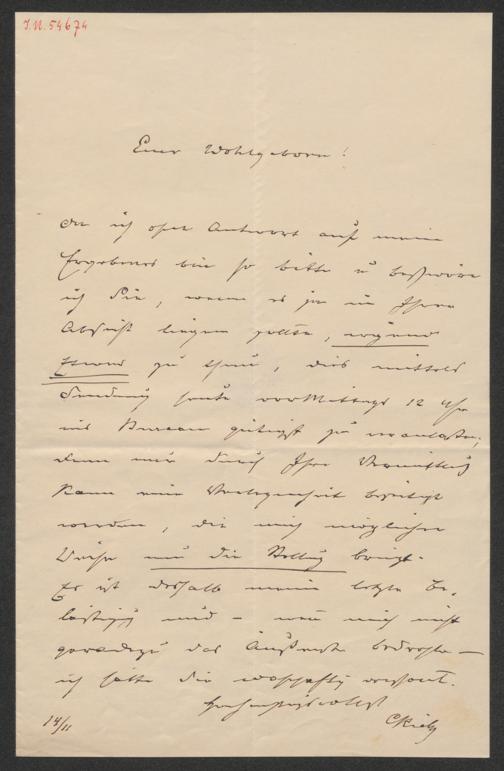 J.N. 54674
Euer Wohlgeboren!
Da ich ohne Antwort auf meine
Ergebenes bin so bitte u beschwöre
ich Sie, wenn es je in Ihrer
Absicht liegen sollte, irgend
Etwas zu thun, dies mittels
Sendung heute vor Mittags 12 Uhr
ins Bureau gütigst zu veranlassen,
denn nur durch Ihre Vermittlg
kann eine Verlegenheit beseitigt
werden, die mich möglicher
Weise um die Stellug bringt.
Es ist deshalb meine letzte Be-
lästigg und – wenn mich nicht
geradezu das Äußerste bedrohte –
ich hätte Sie wahrhaftig verschont.
14/11